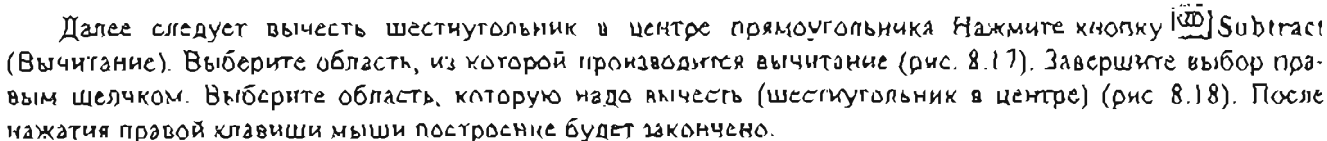 Далее следует вычесть шестиугольник в центре прямоугольника Нажмите кнопку Subtract
(Вычитание). Выберите область, из которой производится вычитание (рис. 8.17). Завершите выбор пра-
вым щелчком. Выберите область, которую надо вычесть (шестиугольник в центре) (рис 8.18). После
нажатия правой клавиши мыши построение будет закончено.